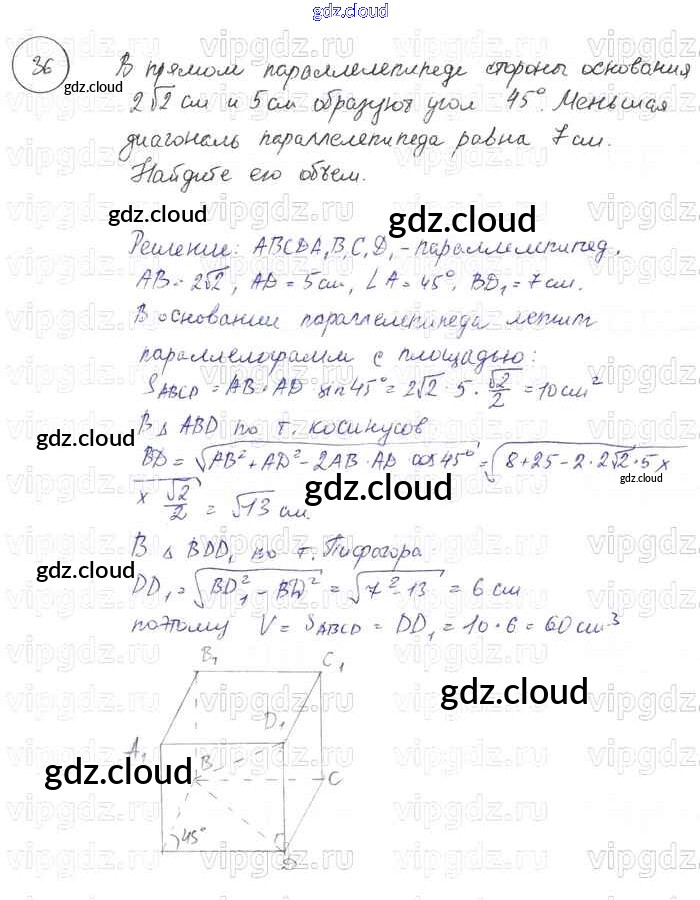 gdz.cloud
36
В прямом параллелепипеде стороны основания
gdz.cloud
2√2 см и 5 см образуют угол 45°. Меньшая
диагональ параллелепипеда равна 7 см.
Найдите его объем.
gdz.cloud
gdz.cloud
Решение: ABCDA₁B₁C₁D₁ - параллелепипед.
AB = 2√2, AD = 5см, ∠A = 45°, BD₁ = 7 см.
В основании параллелепипеда лежит
параллелограмм с площадью:
S_ABCD = AB · AD sin 45° = 2√2 · 5 · √2/2 = 10 см²
В Δ ABD по т. косинусов
gdz.cloud
BD = √(AB² + AD² - 2AB · AD cos 45°) = √(8 + 25 - 2 · 2√2 · 5 x
gdz.cloud
x √2/2) = √13 см.
gdz.cloud
В Δ BDD₁ по т. Пифагора
gdz.cloud
DD₁ = √(BD₁² - BD²) = √(7² - 13) = 6 см
поэтому V = S_ABCD = DD₁ = 10 · 6 = 60 см³
B₁ C₁
gdz.cloud
D₁
A₁
B
gdz.cloud
C
45°
D
vipgdz.ru